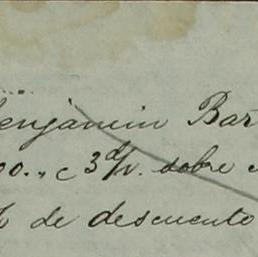 enjamin Bar
00., c 3 d/v. sobre
de descuento